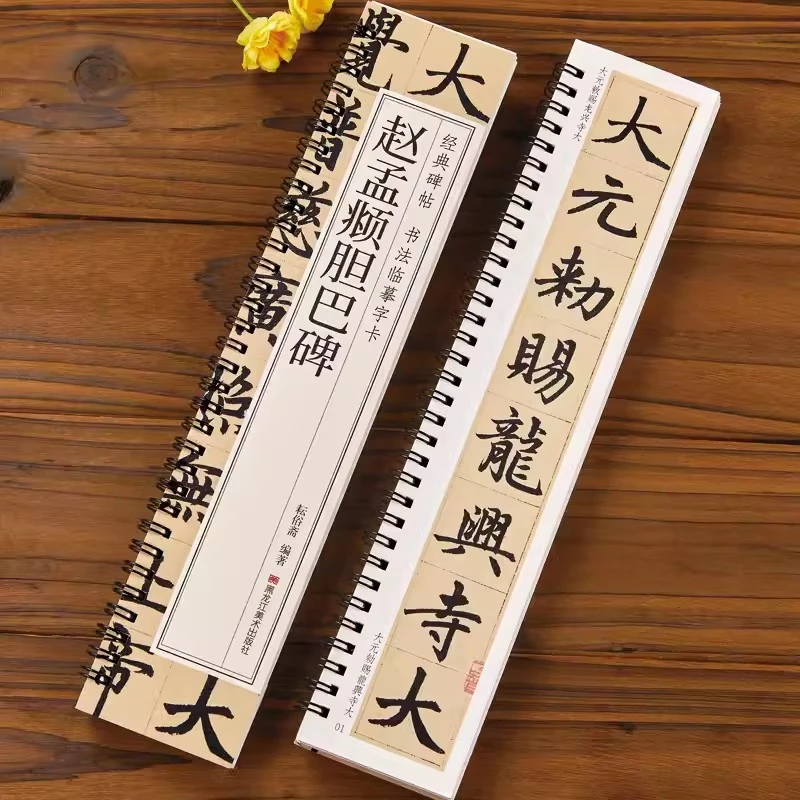 大
覺普慈廣照無上帝
大
经典碑帖 书法临摹字卡
赵孟𫖯胆巴碑
耘俗斋 编著
黑龙江美术出版社
大元敕赐龙兴寺大
大元勑賜龍興寺大
大元勑賜龍興寺大
01